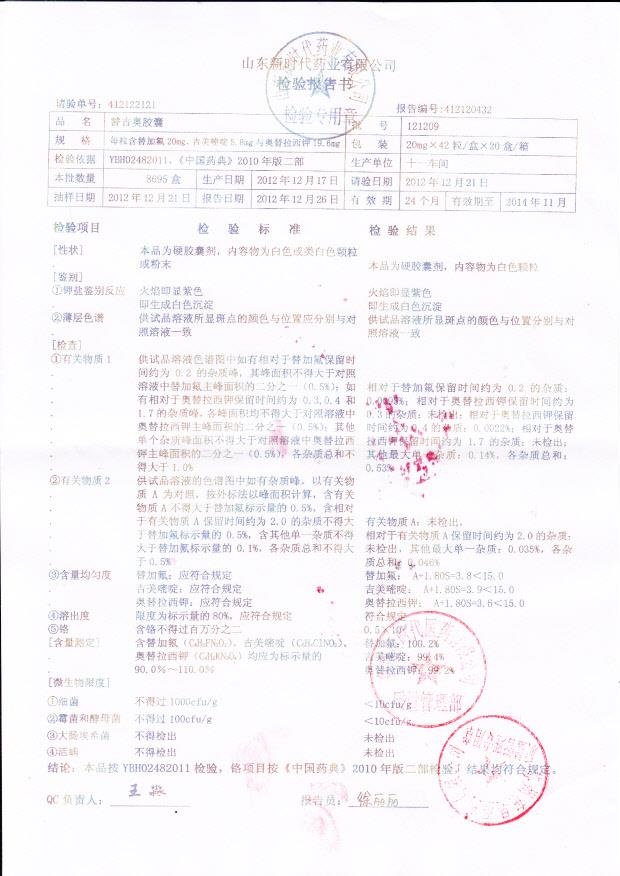 山东新时代药业有限公司
检验报告书
检验专用章
请验单号：412122121 报告编号:412120432
品 名 替吉奥胶囊 批 号 121209
规 格 每粒含替加氟20mg、吉美嘧啶5.8mg与奥替拉西钾19.6mg 包 装 20mg×42粒/盒×20盒/箱
检验依据 YBH02482011、《中国药典》2010年版二部 生产单位 十一车间
本批数量 8695盒 生产日期 2012年12月17日 请验日期 2012年12月21日
抽样日期 2012年12月21日 报告日期 2012年12月26日 有 效 期 24个月 有效期至 2014年11月
检验项目 检 验 标 准 检 验 结 果
[性状] 本品为硬胶囊剂，内容物为白色或类白色颗粒
或粉末 本品为硬胶囊剂，内容物为白色颗粒
[鉴别]
①钾盐鉴别反应 火焰即显紫色 火焰即显紫色
即生成白色沉淀 即生成白色沉淀
②薄层色谱 供试品溶液所显斑点的颜色与位置应分别与对 供试品溶液所显斑点的颜色与位置分别与对
照溶液一致 照溶液一致
[检查]
①有关物质1 供试品溶液色谱图中如有相对于替加氟保留时
间约为0.2的杂质峰，其峰面积不得大于对照
溶液中替加氟主峰面积的二分之一（0.5%）；如 相对于替加氟保留时间约为0.2的杂质：
有相对于奥替拉西钾保留时间约为0.3、0.4和 相对于奥替拉西钾保留时间约为
1.7的杂质峰，各峰面积均不得大于对照溶液中 0.3的杂质：未检出；相对于奥替拉西钾保留
奥替拉西钾主峰面积的二分之一（0.5%）；其他 时间约为0.4的杂质：0.0022%；相对于奥替
单个杂质峰面积不得大于对照溶液中奥替拉西 拉西钾保留时间约为1.7的杂质：未检出；
钾主峰面积的二分之一（0.5%），各杂质总和不 其他最大单一杂质：0.14%，各杂质总和：
得大于1.0% 0.53%
②有关物质2 供试品溶液的色谱图中如有杂质峰，以有关物
质A为对照，按外标法以峰面积计算，含有关
物质A不得大于替加氟标示量的0.5%，含相对
于有关物质A保留时间约为2.0的杂质不得大 有关物质A：未检出，
于替加氟标示量的0.5%，含其他单一杂质不得 相对于有关物质A保留时间约为2.0的杂质：
大于替加氟标示量的0.1%，各杂质总和不得大 未检出，其他最大单一杂质：0.035%，各杂
于0.5% 质总和：0.046%
③含量均匀度 替加氟：应符合规定 替加氟： A+1.80S=3.8＜15.0
吉美嘧啶：应符合规定 吉美嘧啶： A+1.80S=3.9＜15.0
奥替拉西钾：应符合规定 奥替拉西钾： A+1.80S=3.6＜15.0
④溶出度 限度为标示量的80%，应符合规定 符合规定
⑤铬 含铬不得过百万分之二
[含量测定] 含替加氟（C₈H₉FN₂O₃）、吉美嘧啶（C₅H₄ClNO₂）、 替加氟：100.2%
奥替拉西钾（C₅H₂KN₃O₄）均应为标示量的 吉美嘧啶：99.4%
90.0%～110.0% 奥替拉西钾：99.2%
[微生物限度]
①细菌 不得过1000cfu/g ＜10cfu/g
②霉菌和酵母菌 不得过100cfu/g ＜10cfu/g
③大肠埃希菌 不得检出 未检出
④活螨 不得检出 未检出
结论：本品按YBH02482011检验，铬项目按《中国药典》2010年版二部检验，结果均符合规定。
QC负责人： 报告员：徐丽丽